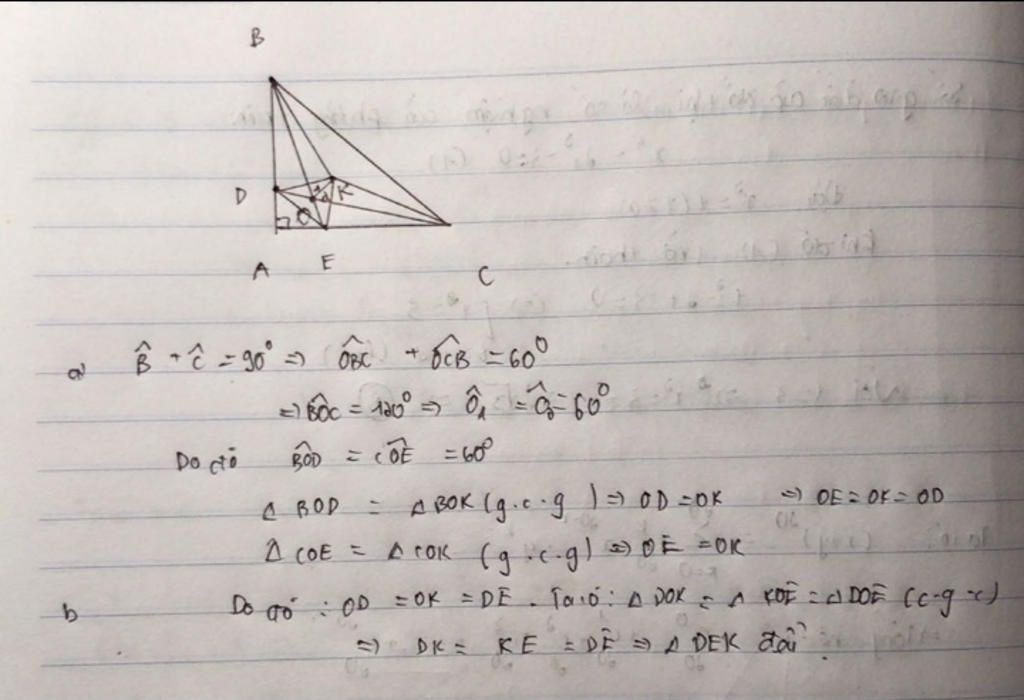 B
D
K
O
A
E
C
a) B̂ + Ĉ = 90° => OBĈ + OĈB = 60°
=> BÔC = 120° => Ô₁ = Ô₂ = 60°
Do đó BÔD = CÔE = 60°
Δ BOD = Δ BOK (g.c.g) => OD = OK => OE = OK = OD
Δ COE = Δ COK (g.c.g) => OE = OK
b Do đó : OD = OK = DE . Ta có : Δ DOK = Δ KOE = Δ DOE (c-g-c)
=> DK = KE = DE => Δ DEK đều .